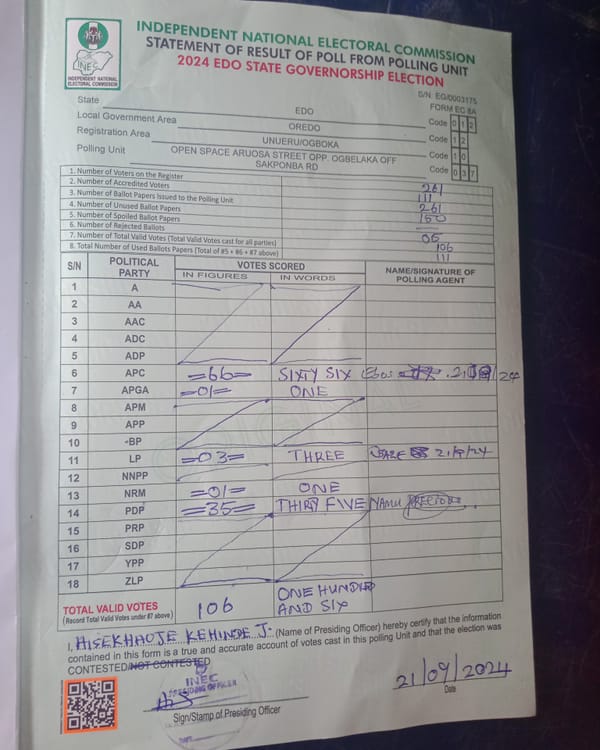 INEC
INDEPENDENT NATIONAL ELECTORAL COMMISSION
INDEPENDENT NATIONAL ELECTORAL COMMISSION
STATEMENT OF RESULT OF POLL FROM POLLING UNIT
2024 EDO STATE GOVERNORSHIP ELECTION
S/N: EG/0003175
FORM EC 8A
State EDO Code 0 1 2
Local Government Area OREDO Code 1 2
Registration Area UNUERU/OGBOKA Code 1 0
Polling Unit OPEN SPACE ARUOSA STREET OPP. OGBELAKA OFF SAKPONBA RD Code 0 3 7
1. Number of Voters on the Register 261
2. Number of Accredited Voters 111
3. Number of Ballot Papers Issued to the Polling Unit 261
4. Number of Unused Ballot Papers 150
5. Number of Spoiled Ballot Papers
6. Number of Rejected Ballots 05
7. Number of Total Valid Votes (Total Valid Votes cast for all parties) 106
8. Total Number of Used Ballots Papers (Total of #5 + #6 + #7 above) 111
S/N POLITICAL PARTY VOTES SCORED NAME/SIGNATURE OF POLLING AGENT
IN FIGURES IN WORDS
1 A
2 AA
3 AAC
4 ADC
5 ADP
6 APC =66= SIXTY SIX
7 APGA =01= ONE
8 APM
9 APP
10 BP
11 LP =03= THREE 21/9/24
12 NNPP
13 NRM =01= ONE
14 PDP =35= THIRTY FIVE
15 PRP
16 SDP
17 YPP
18 ZLP
TOTAL VALID VOTES 106 ONE HUNDRED AND SIX
(Record Total Valid Votes under #7 above)
I, KEHINDE J. (Name of Presiding Officer) hereby certify that the information
contained in this form is a true and accurate account of votes cast in this polling Unit and that the election was
CONTESTED/NOT CONTESTED
INEC
PRESIDING OFFICER
21/09/2024
Sign/Stamp of Presiding Officer
Date